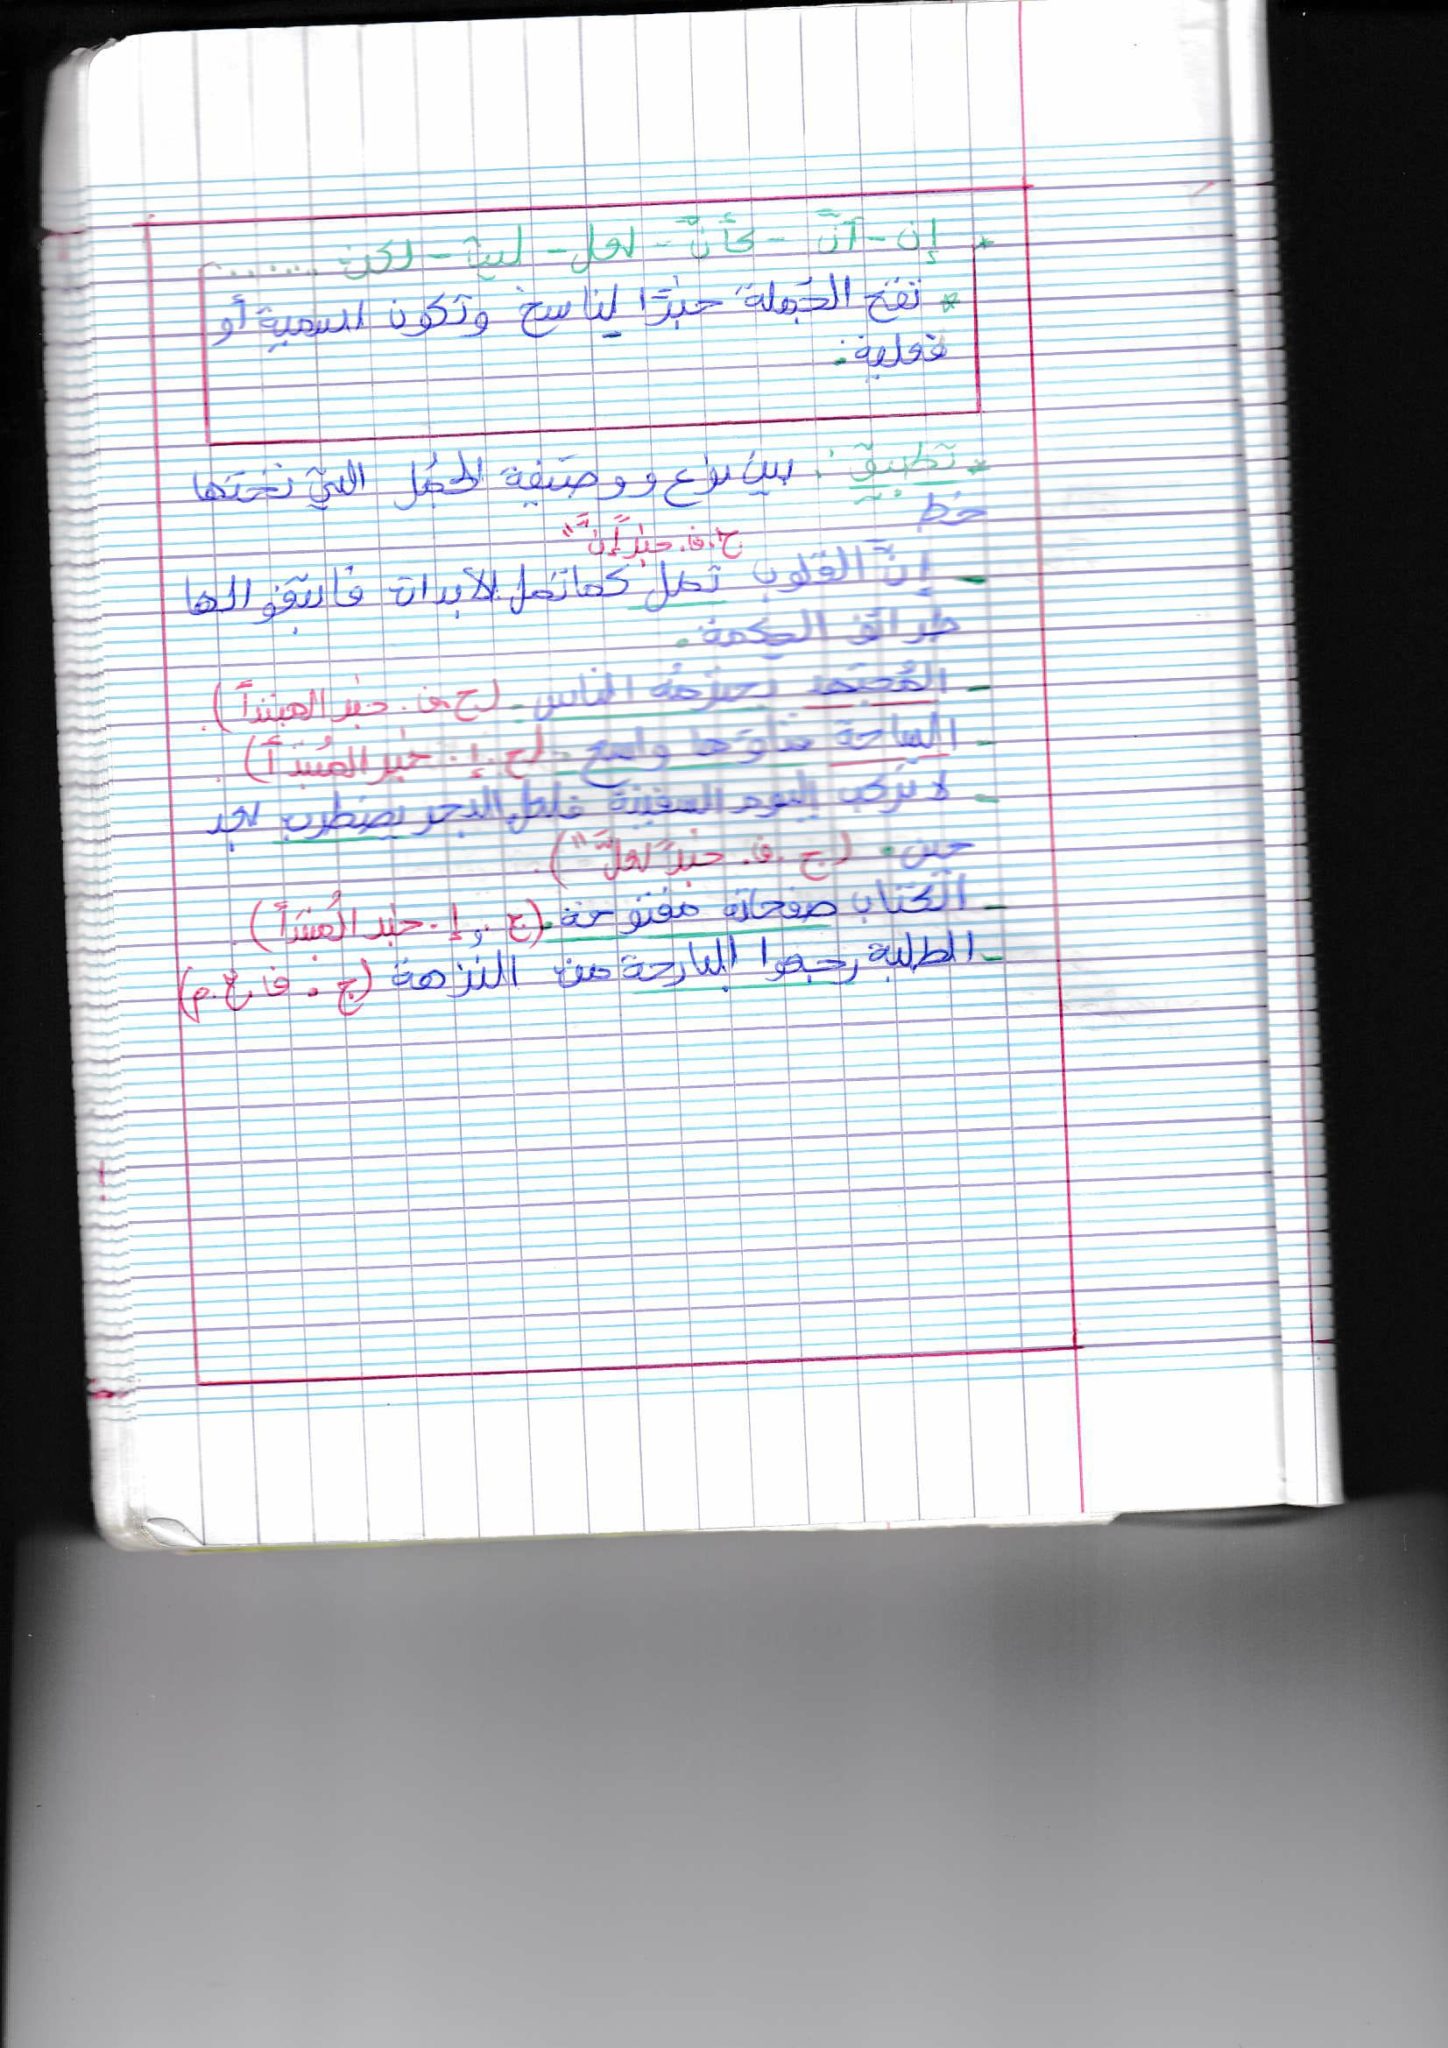 * إن - أنّ - كأنّ - لعل - ليت - لكن ......
* تقع الجُملة خبرًا لناسخ وتكون اسمية أو
فعلية.
* تطبيق: بين نوع و وضيفة الجُمل التي تحتها
خط
ج. ف. خبر "إنّ"
- إنّ القلوب تمل كما تمل الأبدان فابتغوا لها
طرائف الحكمة.
- المُجتهد يحترمهُ الناس. (ج. ف. خبر المبتدأ).
- الساحة واسع. (ج. إ. خبر المُبتدأ).
- لا تركب اليوم السفينة فلعل البحر يضطرب بعد
حين. (ج. ف. خبر "لعلّ").
- الكتاب صفحاته مفتوحة. (ج. إ. خبر المُبتدأ).
- الطلبة رجعوا البارحة من النزهة (ج. ف. خ. م)